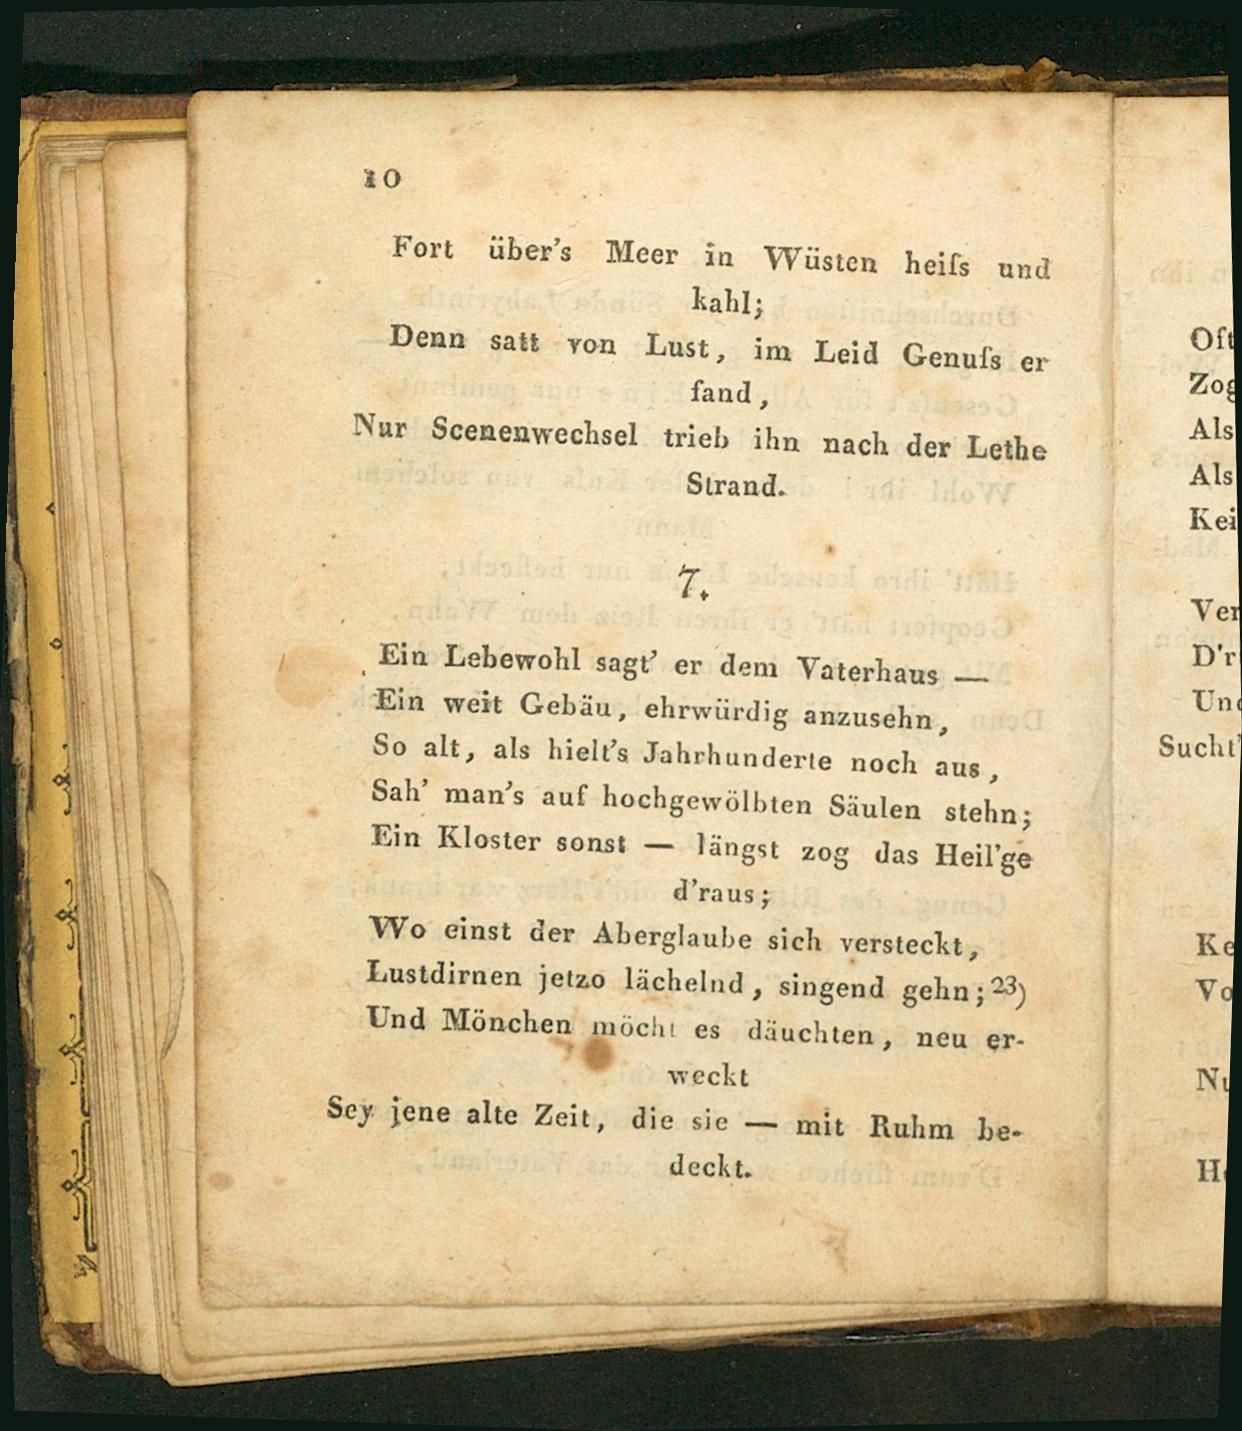 10
Fort über's Meer in Wüsten heiſs und
kahl;
Denn satt von Lust, im Leid Genuſs er
fand,
Nur Scenenwechsel trieb ihn nach der Lethe
Strand.
7.
Ein Lebewohl sagt' er dem Vaterhaus —
Ein weit Gebäu, ehrwürdig anzusehn,
So alt, als hielt's Jahrhunderte noch aus,
Sah' man's auf hochgewölbten Säulen stehn;
Ein Kloster sonst — längst zog das Heil'ge
d'raus;
Wo einst der Aberglaube sich versteckt,
Lustdirnen jetzo lächelnd, singend gehn; 23)
Und Mönchen möcht es däuchten, neu er-
weckt
Sey jene alte Zeit, die sie — mit Ruhm be-
deckt.
Oft
Zog
Als
Als
Kei
Ver
D'r
Und
Sucht'
Ke
Vo
Nu